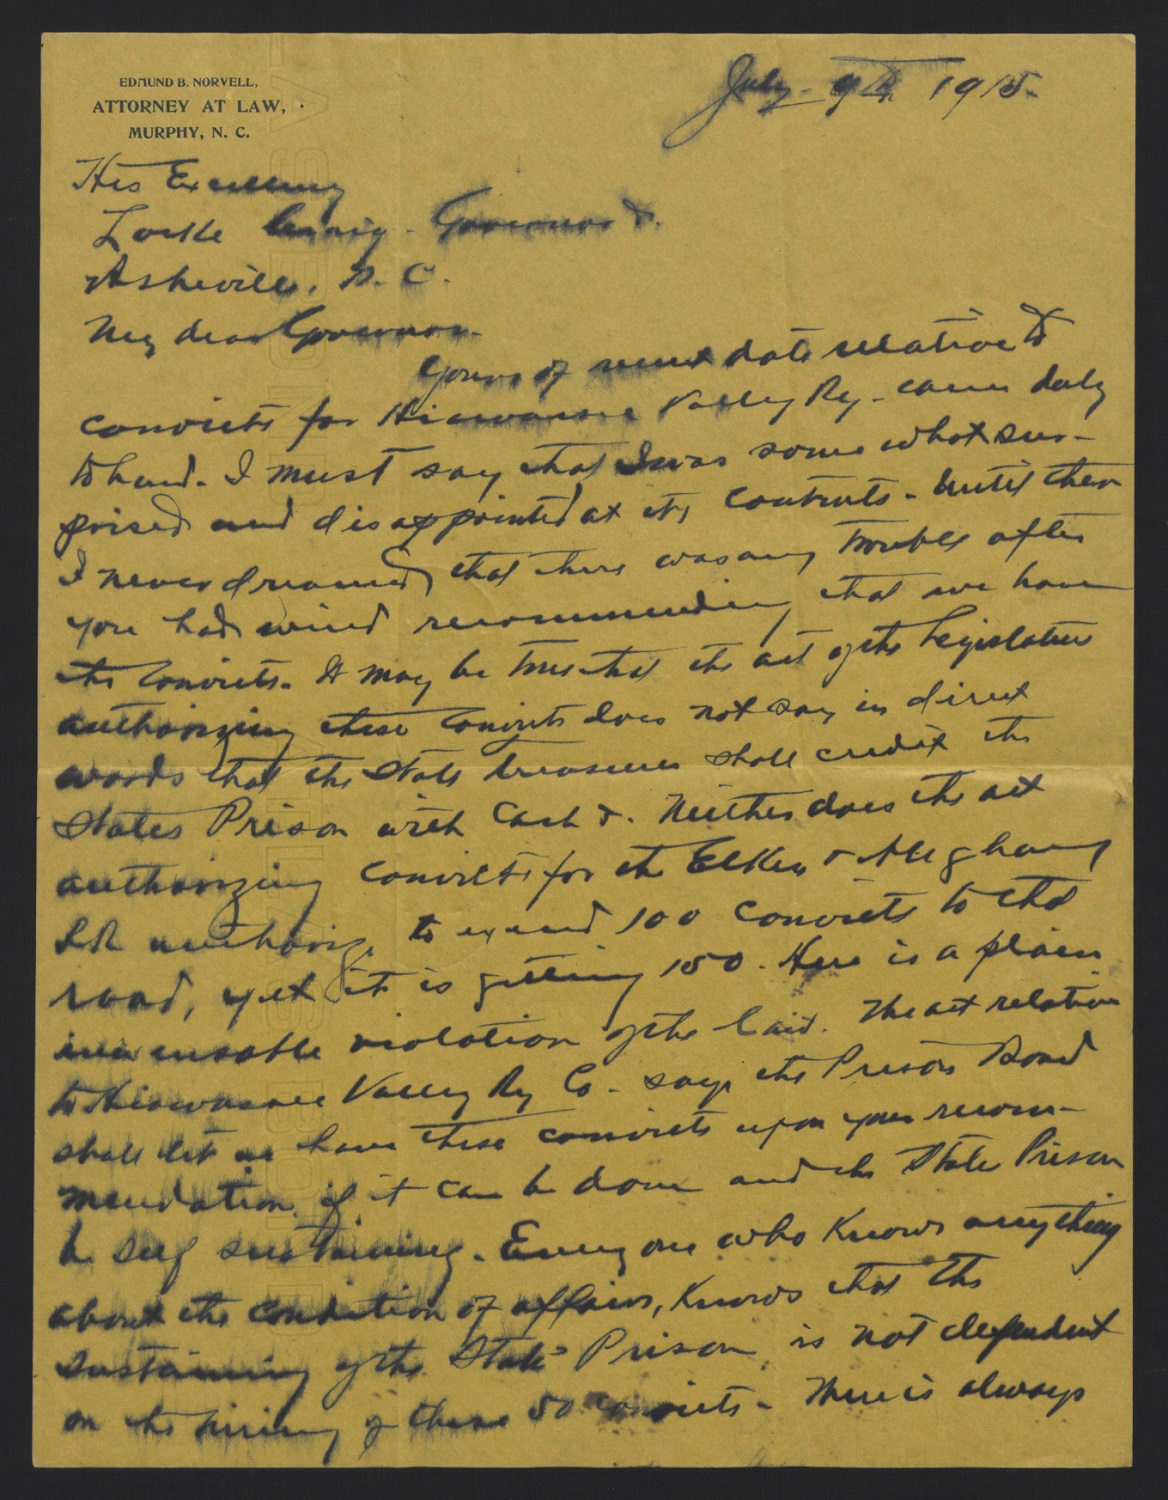 EDMUND B. NORVELL,
ATTORNEY AT LAW,
MURPHY, N. C.
July- 9th 1915-
His Excellency
Locke Craig- Governor &.
Asheville, N. C.
My dear Governor-
Yours of recent date relative to
convicts for Hiawassee Valley Ry- came duly
to hand- I must say that I was some what sur-
prised and disappointed at its contents- Until then
I never dreamed that there was any trouble after
you had wired recommending that we have
the convicts- It may be true that the act of the Legislature
authorizing these convicts does not say in direct
words that the State treasurer shall credit the
States Prison with Cash &. Neither does the act
authorizing convicts for the Elkin & Alleghany
RR authorize to exceed 100 convicts to that
road, yet it is getting 150. Here is a plain
violation of the law. The act relative
to Hiawassee Valley Ry Co- says the Prison Board
shall let us have these convicts upon your recom-
mendation, if it can be done and the State Prison
be self sustaining- Every one who knows anything
about the condition of affairs, knows that the
sustaining of the State Prison is not dependent
on the hiring of these 50 convicts- There is always